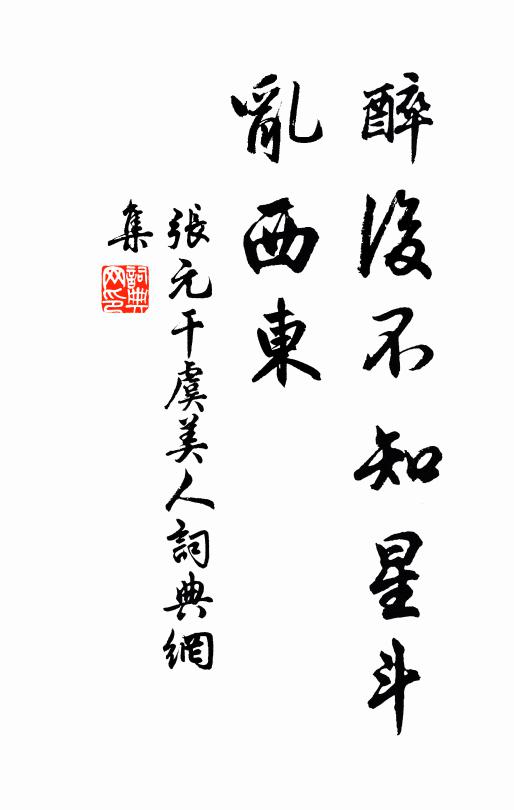 醉後不知星斗
亂西東
張元干虞美人詞典網
集
詞典網印